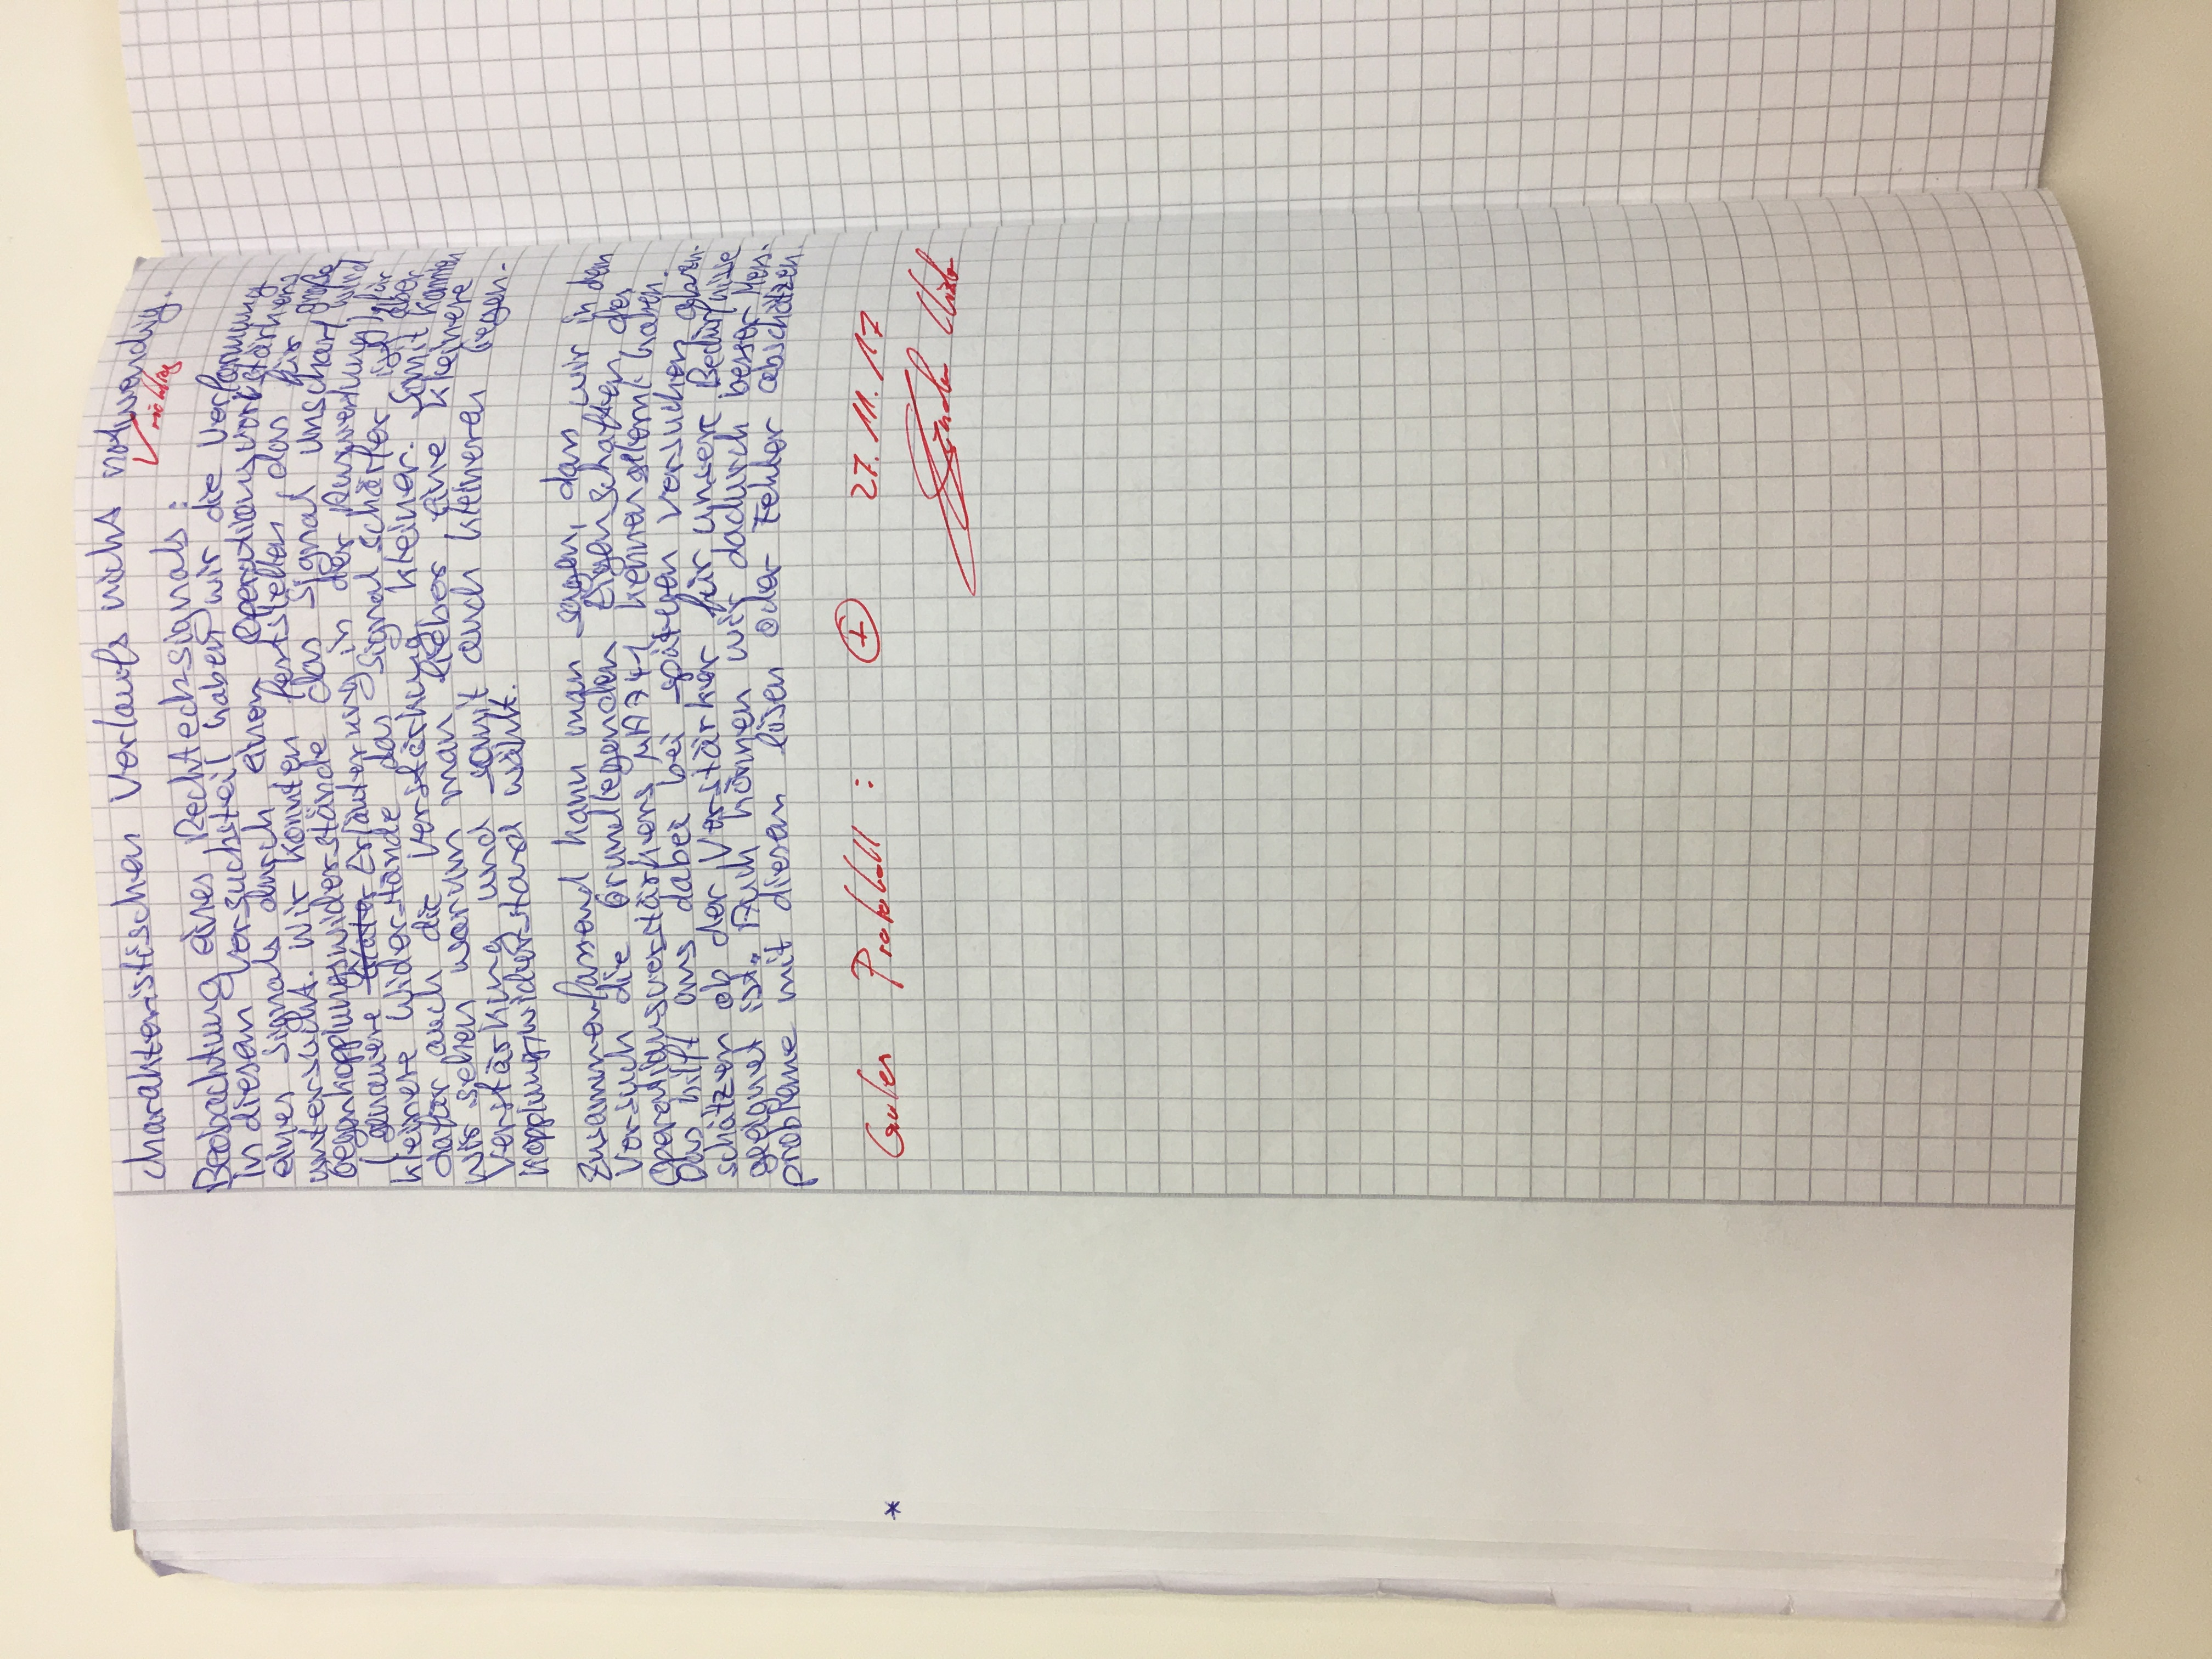 charakteristischen Verlaufs nicht notwendig.
√ richtig
Beobachtung eines Rechtecksignals:
In diesem Versuchsteil haben wir die Verformung
eines Signals durch einen Operationsverstärkers
untersucht. Wir konnten feststellen, das für große
Gegenkopplungswiderstände das Signal unscharf wird
(genauere Erläuterung in der Auswertung), für
kleinere Widerstände das Signal schärfer ist, aber
dafür auch die Verstärkung kleiner. Somit konnten
wir sehen warum man lieber eine kleinere
Verstärkung und somit auch kleineren Gegen-
kopplungswiderstand wählt.
Zusammenfassend kann man sagen, dass wir in dem
Versuch die Grundlegenden Eigenschaften des
Operationsverstärkers µA741 kennengelernt haben.
Das hilft uns dabei bei späteren Versuchen abzu-
schätzen ob der Verstärker für unsere Bedürfnisse
geeignet ist. Auch können wir dadurch besser Mess-
probleme mit diesem lösen oder Fehler abschätzen.
Gutes Protokoll : + 27.11.17
*